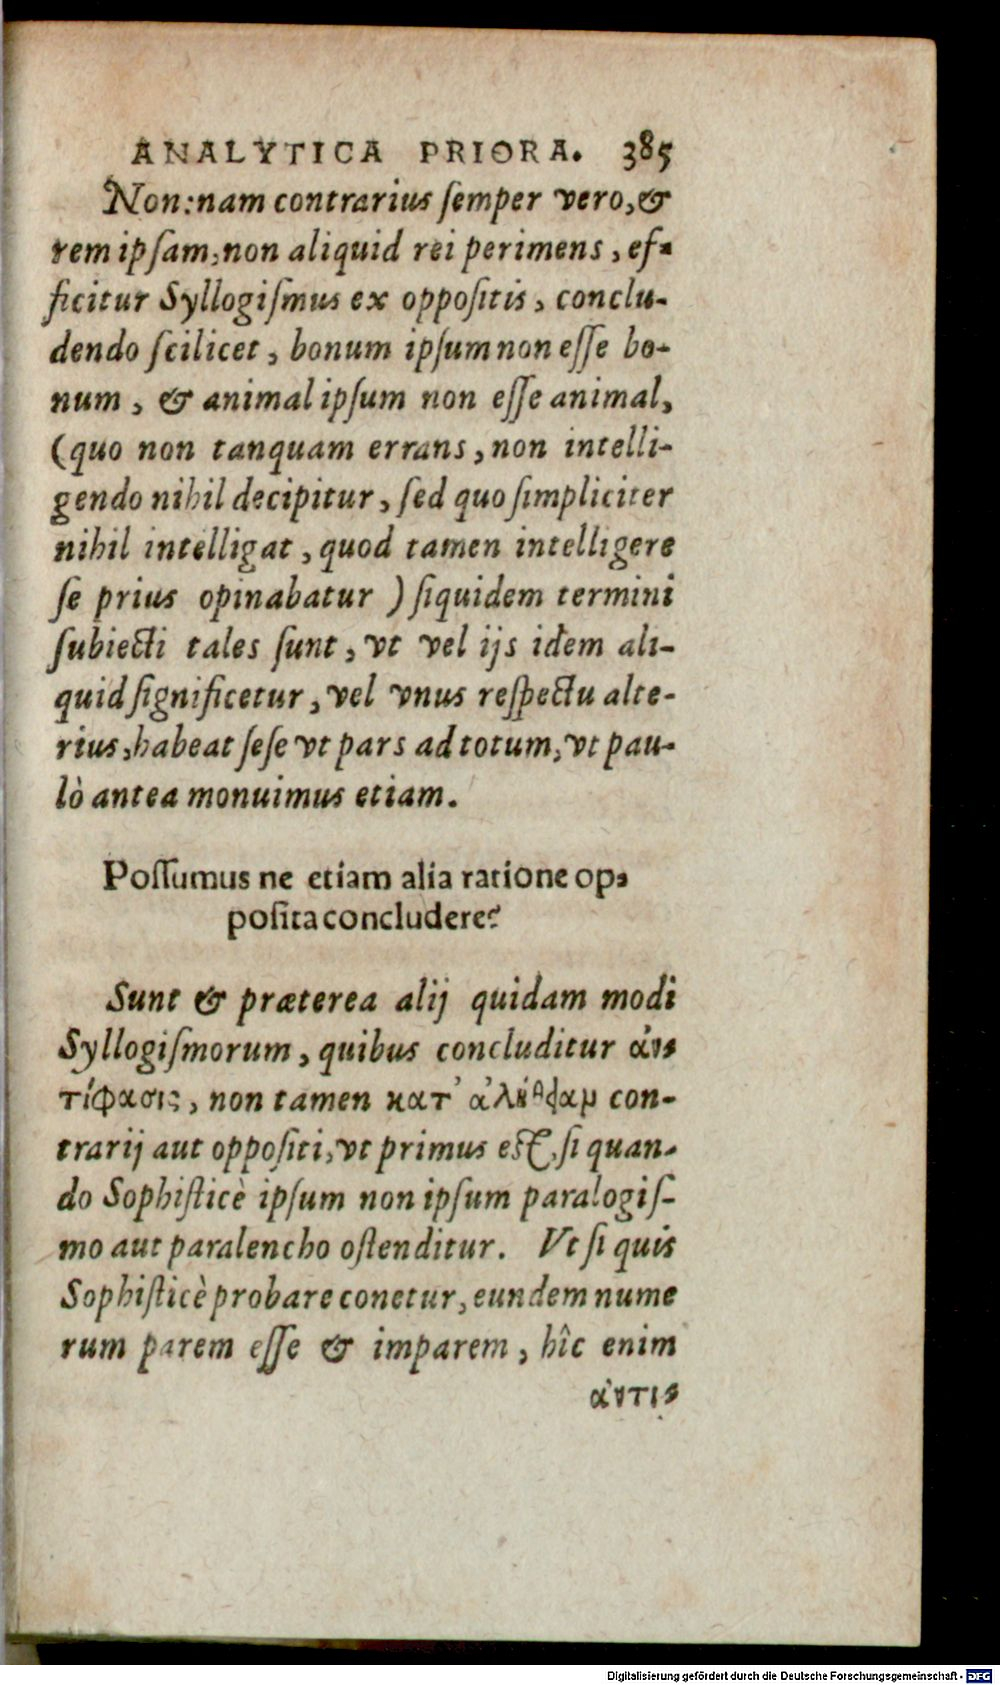 ANALYTICA PRIORA. 385
Non: nam contrarius ſemper vero, &
rem ipſam, non aliquid rei perimens, ef-
ficitur Syllogiſmus ex oppoſitis, conclu-
dendo ſcilicet, bonum ipſum non eſſe bo-
num, & animal ipſum non eſſe animal,
(quo non tanquam errans, non intelli-
gendo nihil decipitur, ſed quo ſimpliciter
nihil intelligat, quod tamen intelligere
ſe prius opinabatur ) ſiquidem termini
ſubiecti tales ſunt, vt vel ijs idem ali-
quid ſignificetur, vel vnus reſpectu alte-
rius, habeat ſeſe vt pars ad totum, vt pau-
lò antea monuimus etiam.
Poſſumus ne etiam alia ratione op-
poſita concludere?
Sunt & præterea alij quidam modi
Syllogiſmorum, quibus concluditur ἀν-
τίφασις, non tamen κατ᾽ con-
trarij aut oppoſiti, vt primus eſt, ſi quan-
do Sophiſticè ipſum non ipſum paralogiſ-
mo aut paralencho oſtenditur. Vt ſi quis
Sophiſticè probare conetur, eundem nume
rum parem eſſe & imparem, hîc enim
ἀντι-
Digitalisierung gefördert durch die Deutsche Forschungsgemeinschaft - DFG